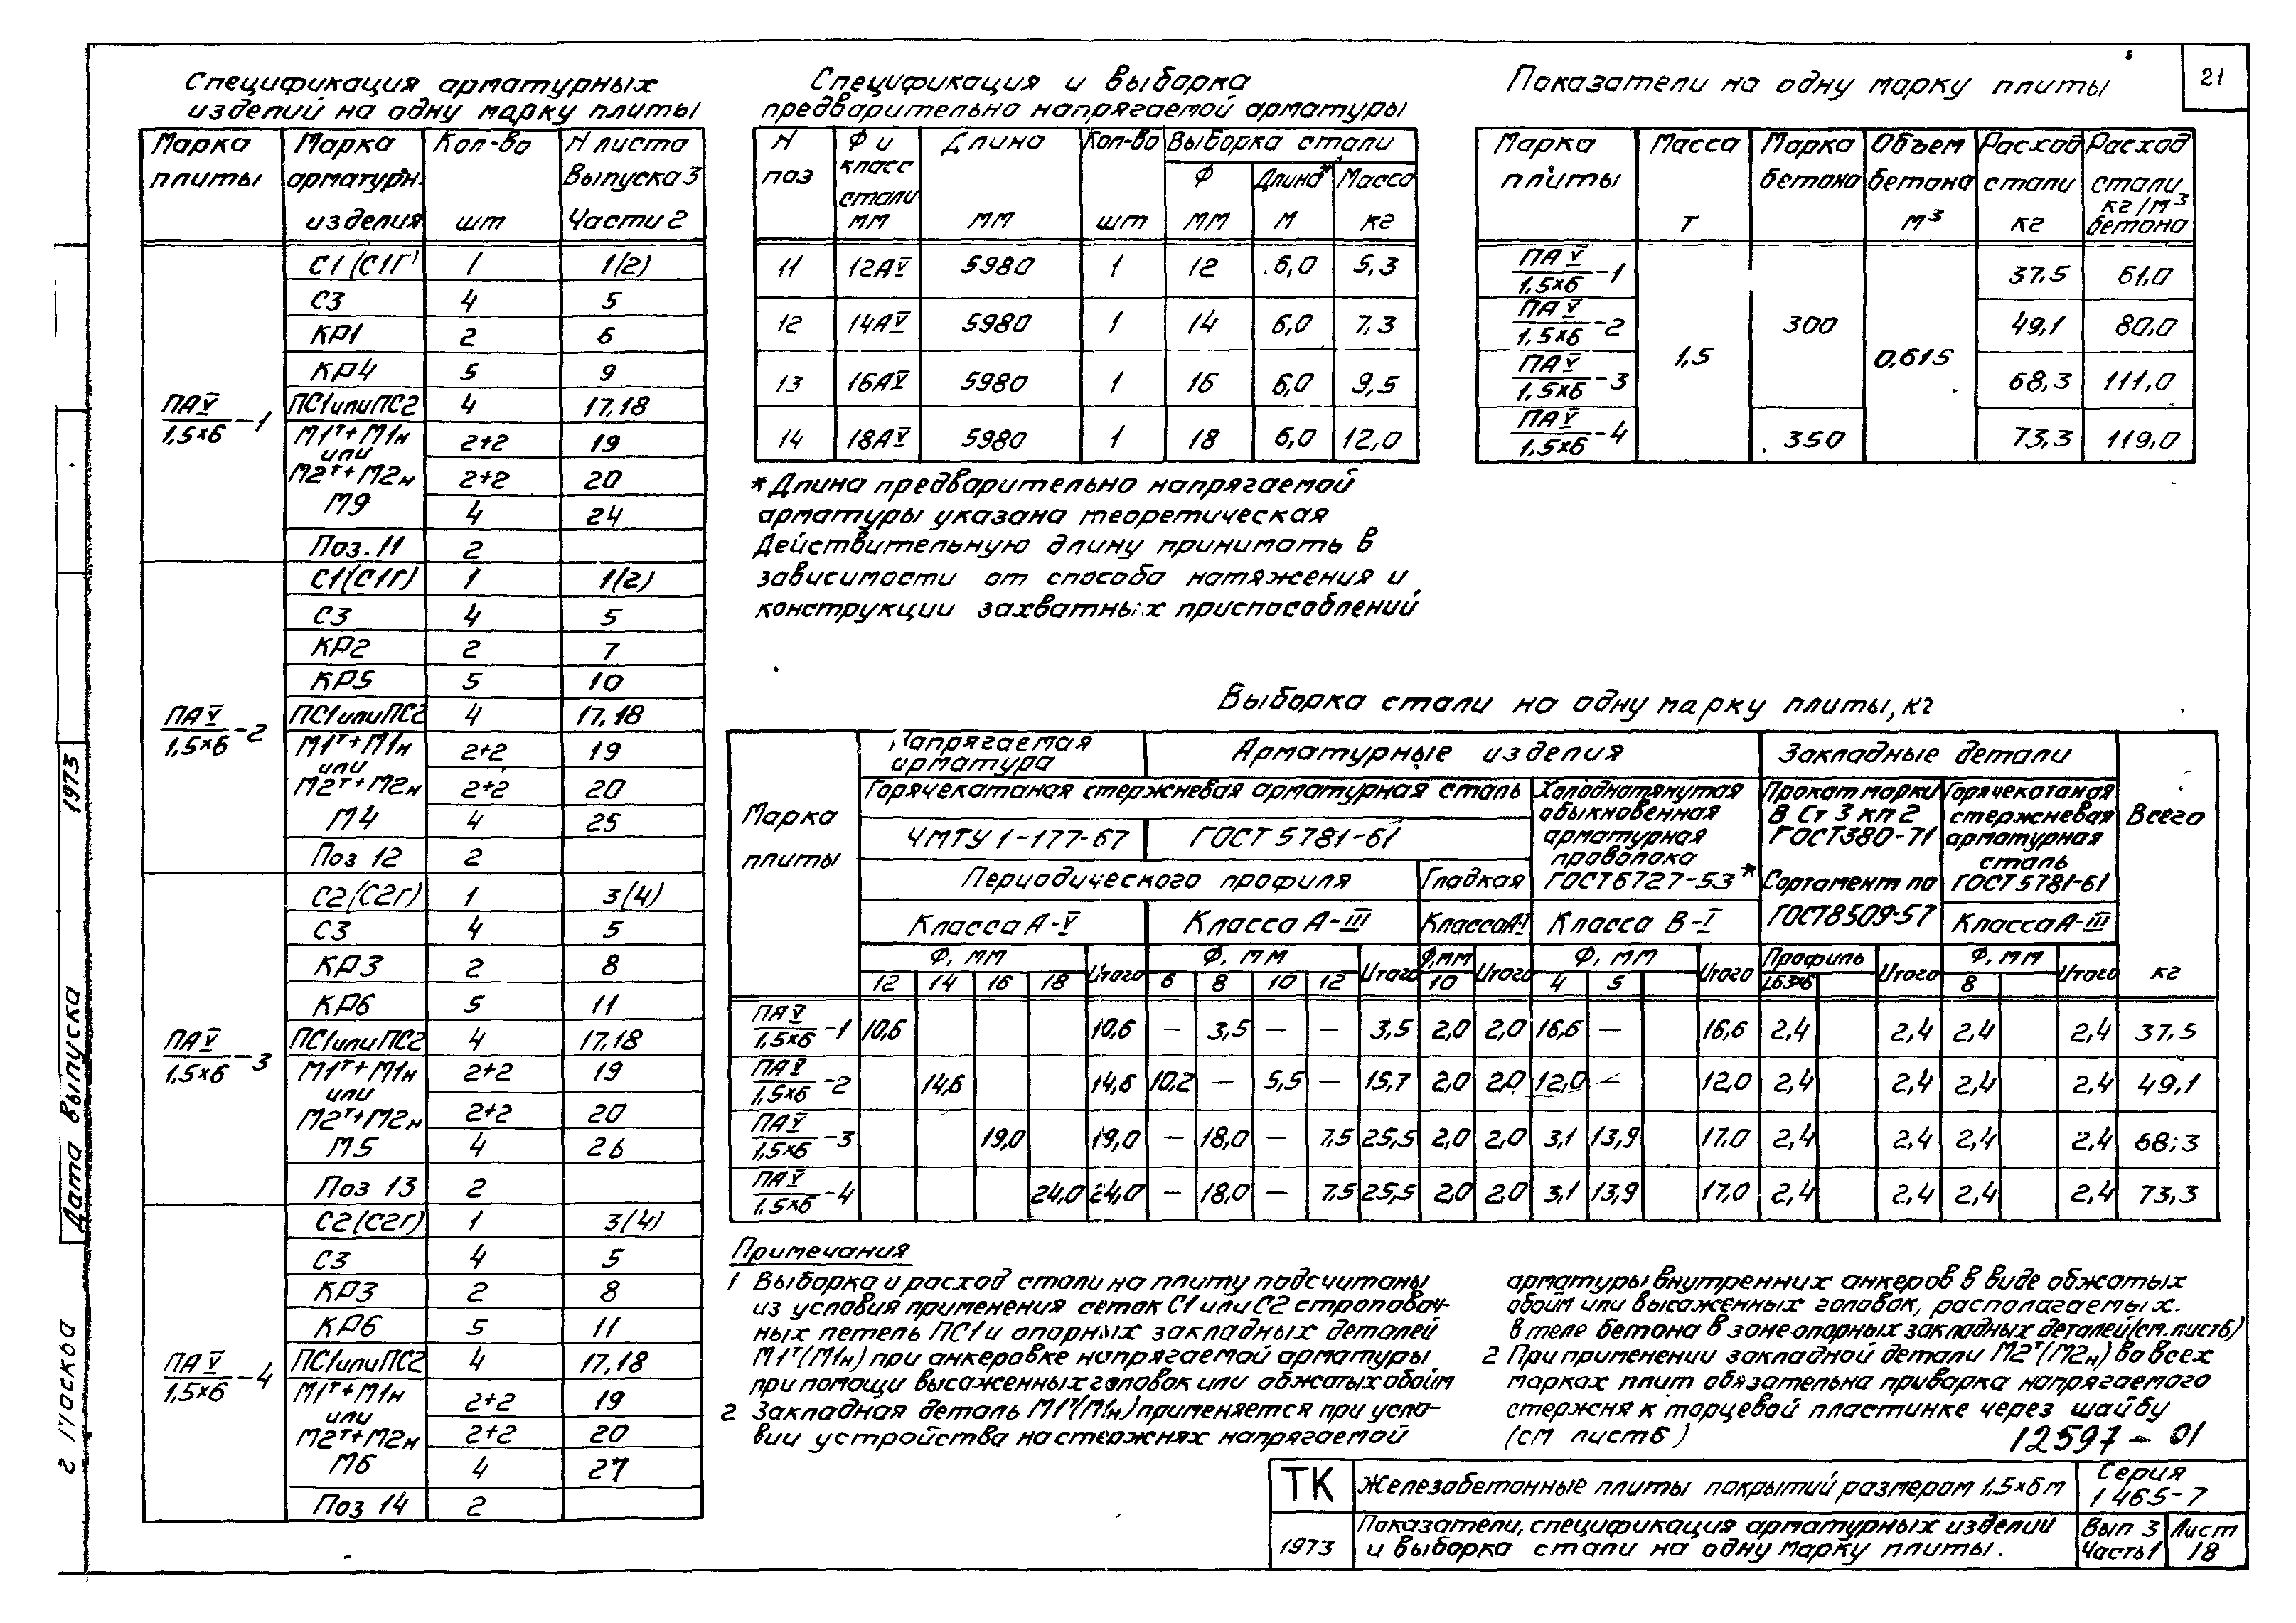 21
Спецификация арматурных
изделий на одну марку плиты
Марка плиты | Марка арматурн. изделия | Кол-во шт | N листа Выпуска 3 Части 2
ПАV/1,5×6-1 | С1(С1Г) | 1 | 1(2)
С3 | 4 | 5
КР1 | 2 | 6
КР4 | 5 | 9
ПС1 или ПС2 | 4 | 17,18
М1т+М1н | 2+2 | 19
или
М2т+М2н | 2+2 | 20
М9 | 4 | 24
Поз. 11 | 2
ПАV/1,5×6-2 | С1(С1Г) | 1 | 1(2)
С3 | 4 | 5
КР2 | 2 | 7
КР5 | 5 | 10
ПС1 или ПС2 | 4 | 17,18
М1т+М1н | 2+2 | 19
или
М2т+М2н | 2+2 | 20
М4 | 4 | 25
Поз 12 | 2
ПАV/1,5×6-3 | С2(С2Г) | 1 | 3(4)
С3 | 4 | 5
КР3 | 2 | 8
КР6 | 5 | 11
ПС1 или ПС2 | 4 | 17,18
М1т+М1н | 2+2 | 19
или
М2т+М2н | 2+2 | 20
М5 | 4 | 26
Поз 13 | 2
ПАV/1,5×6-4 | С2(С2Г) | 1 | 3(4)
С3 | 4 | 5
КР3 | 2 | 8
КР6 | 5 | 11
ПС1 или ПС2 | 4 | 17,18
М1т+М1н | 2+2 | 19
или
М2т+М2н | 2+2 | 20
М6 | 4 | 27
Поз 14 | 2
Спецификация и выборка
предварительно напрягаемой арматуры
N поз | Ф и класс стали мм | Длина мм | Кол-во шт | Выборка стали
Ф мм | Длина* м | Масса кг
11 | 12АV | 5980 | 1 | 12 | 6,0 | 5,3
12 | 14АV | 5980 | 1 | 14 | 6,0 | 7,3
13 | 16АV | 5980 | 1 | 16 | 6,0 | 9,5
14 | 18АV | 5980 | 1 | 18 | 6,0 | 12,0
* Длина предварительно напрягаемой
арматуры указана теоретическая
Действительную длину принимать в
зависимости от способа натяжения и
конструкции захватных приспособлений
Показатели на одну марку плиты
Марка плиты | Масса т | Марка бетона | Объем бетона м³ | Расход стали кг | Расход стали кг/м³ бетона
ПАV/1,5×6-1 | 1,5 | 300 | 0,615 | 37,5 | 61,0
ПАV/1,5×6-2 | 49,1 | 80,0
ПАV/1,5×6-3 | 68,3 | 111,0
ПАV/1,5×6-4 | 350 | 73,3 | 119,0
Выборка стали на одну марку плиты, кг
Марка плиты | Напрягаемая арматура | Арматурные изделия | Закладные детали | Всего кг
Горячекатаная стержневая арматурная сталь | Холоднотянутая обыкновенная арматурная проволока ГОСТ 6727-53* | Прокат марки В Ст 3 кп 2 ГОСТ 380-71 Сортамент по ГОСТ 8509-57 | Горячекатаная стержневая арматурная сталь ГОСТ 5781-61
ЧМТУ 1-177-67 | ГОСТ 5781-61
Периодического профиля | Гладкая
Класса А-V | Класса А-III | Класса А-I | Класса В-I | Класса А-III
Ф, мм | Итого | Ф, мм | Итого | Ф, мм | Итого | Ф, мм | Итого | Профиль | Итого | Ф, мм | Итого
12 | 14 | 16 | 18 | 6 | 8 | 10 | 12 | 10 | 4 | 5 | L63×6 | 8
ПАV/1,5×6-1 | 10,6 | 10,6 | — | 3,5 | — | — | 3,5 | 2,0 | 2,0 | 16,6 | — | 16,6 | 2,4 | 2,4 | 2,4 | 2,4 | 37,5
ПАV/1,5×6-2 | 14,6 | 14,6 | 10,2 | — | 5,5 | — | 15,7 | 2,0 | 2,0 | 12,0 | — | 12,0 | 2,4 | 2,4 | 2,4 | 2,4 | 49,1
ПАV/1,5×6-3 | 19,0 | 19,0 | — | 18,0 | — | 7,5 | 25,5 | 2,0 | 2,0 | 3,1 | 13,9 | 17,0 | 2,4 | 2,4 | 2,4 | 2,4 | 68,3
ПАV/1,5×6-4 | 24,0 | 24,0 | — | 18,0 | — | 7,5 | 25,5 | 2,0 | 2,0 | 3,1 | 13,9 | 17,0 | 2,4 | 2,4 | 2,4 | 2,4 | 73,3
Примечания
1 Выборка и расход стали на плиту подсчитаны
из условия применения сеток С1 или С2 строповоч-
ных петель ПС1 и опорных закладных деталей
М1т(М1н) при анкеровке напрягаемой арматуры
при помощи высаженных головок или обжатых обойм
2 Закладная деталь М1т(М1н) применяется при усло-
вии устройства на стержнях напрягаемой
арматуры внутренних анкеров в виде обжатых
обойм или высаженных головок, располагаемых
в теле бетона в зоне опорных закладных деталей (см. лист 6)
2 При применении закладной детали М2т(М2н) во всех
марках плит обязательна приварка напрягаемого
стержня к торцевой пластинке через шайбу
(см лист 6)
12597-01
ТК | Железобетонные плиты покрытий размером 1,5×6м | Серия 1 465-7
1973 | Показатели, спецификация арматурных изделий
и выборка стали на одну марку плиты. | Вып 3 Часть 1 | Лист 18
г Москва Дата выпуска 1973